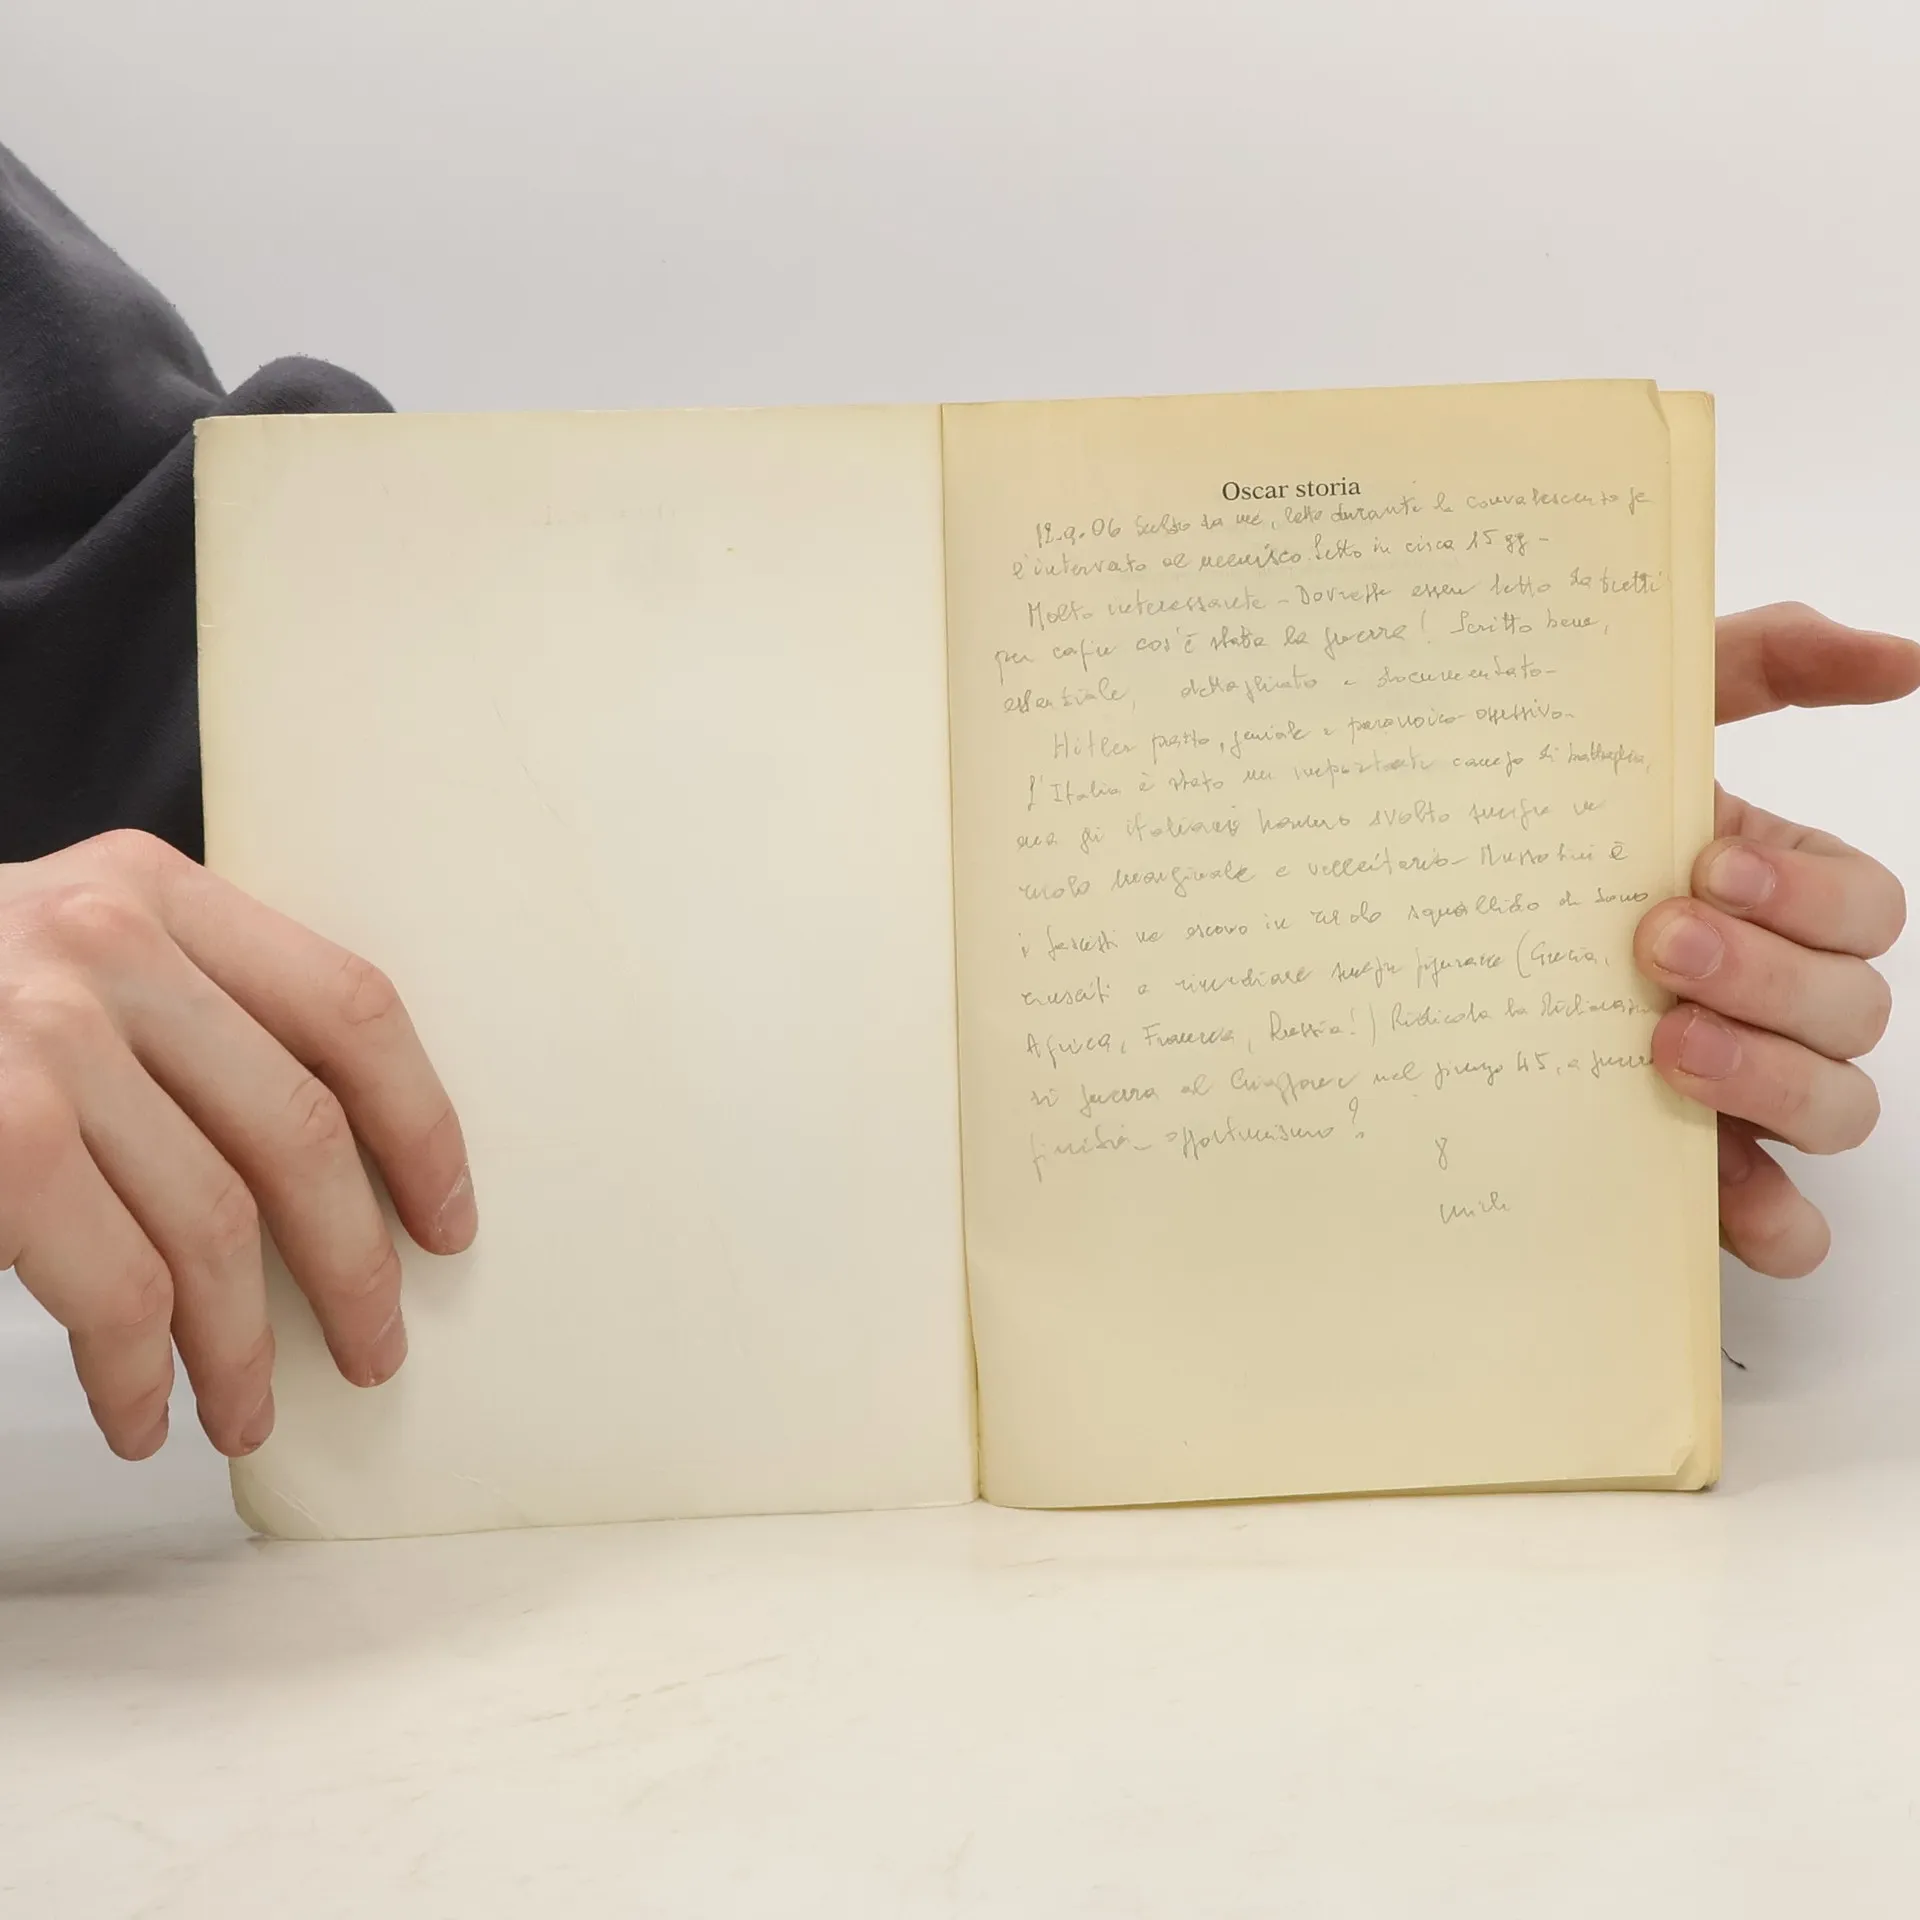 Oscar storia
12.9.06 Scelto da me, letto durante la convalescenza
l'intervento al menisco. Letto in circa 15 gg -
Molto interessante - Dovrebbe essere letto da tutti
per capire cos'è stata la guerra! Scritto bene,
essenziale, dettagliato e documentato -
Hitler pazzo, geniale e paranoico ossessivo -
L'Italia è stato un importante campo di battaglia,
ma gli italiani hanno svolto sempre un
ruolo marginale e velleitario - Mussolini e
i fascisti ne escono in modo squallido
riusciti a rimediare sempre figuracce (Grecia,
Africa, Francia, Russia!) Ridicola la dichiarazione
di guerra al Giappone nel 45, a guerra
finita - opportunismo?
8